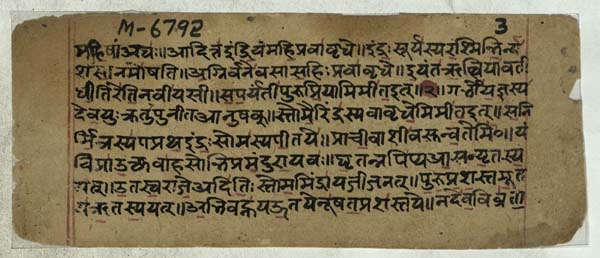 M-6792 3
महिषाँ अघः॥ आदित्त इंद्रियं महि प्रवावृधे॥ इंद्रः सूर्यस्य रश्मिभिर्न्य
र्शसानमोषति॥ अग्निर्वनेव सासहिः प्रवावृधे॥ इयं त ऋत्वियावती
धीतिरेति नवीयसी॥ सपर्यंती पुरुप्रिया मिमीत इत्॥२॥ गर्भो यज्ञस्य
देवयुः क्रतुं पुनीत आनुषक्॥ स्तोमैरिंद्रस्य वावृधे मिमीत इत्॥ सनि
र्मित्रस्य पप्रथ इंद्रः सोमस्य पीतये॥ प्राची वाशीव सुन्वते मि०॥ यं
विप्रा उक्थवाहसोभिप्रमंदुरायवः॥ घृतं न पिप्य आसन्यृतस्य
यत्॥ उत स्वराजे अदितिः स्तोममिंद्राय जीजनत्॥ पुरुप्रशस्तमूत
य ऋतस्य यत्॥ अभि वह्नय ऊतयेनूषत प्रशस्तये॥ न देव विव्रता